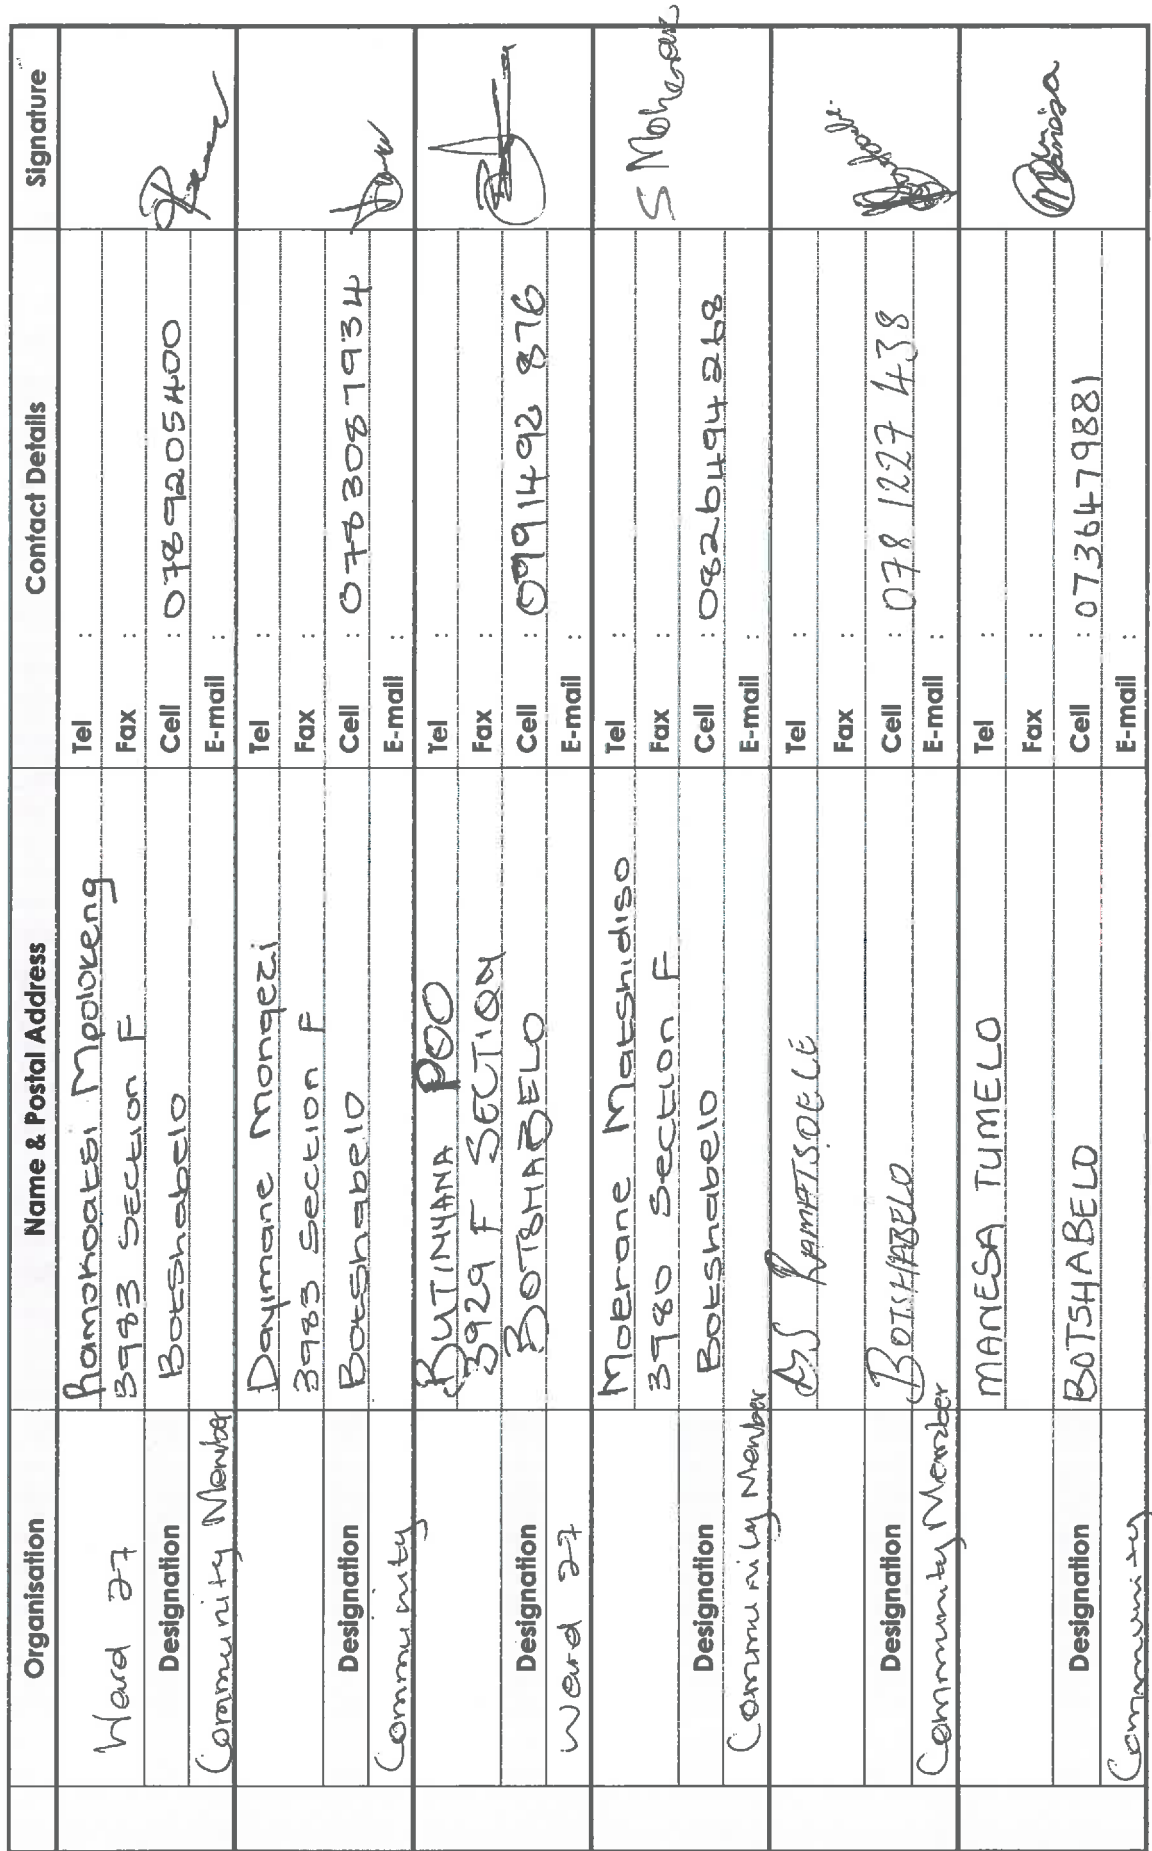 Organisation Name & Postal Address Contact Details Signature
Ward 27
Designation
Community Member
Ramohoatsi Mpolokeng
3983 Section F
Botshabelo
Tel :
Fax :
Cell : 0789205400
E-mail :
Designation
Community
Dayimane Mongezi
3983 Section F
Botshabelo
Tel :
Fax :
Cell : 0783087934
E-mail :
Designation
Ward 27
BUTINYANA POO
3929 F SECTION
BOTSHABELO
Tel :
Fax :
Cell : 0791492 876
E-mail :
Designation
Community Member
Mokrane Matshidiso
3980 Section F
Botshabelo
Tel :
Fax :
Cell : 0826494268
E-mail :
S
Designation
Community Member
RAMATSOELE
BOTSHABELO
Tel :
Fax :
Cell : 078 1227 438
E-mail :
Designation
Community
MANESA TUMELO
BOTSHABELO
Tel :
Fax :
Cell : 0736479881
E-mail :